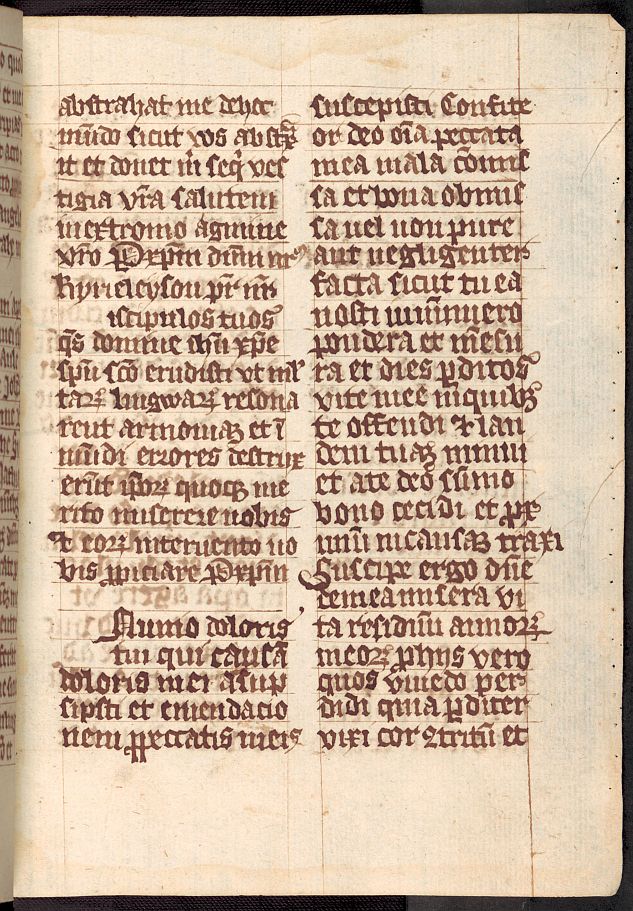 abstrahat me de hoc
mūdo sicut vos abstx̄
it et donet m̄ seq̄ ves
tigia vr̄a salutem
in extremo agmine
vr̄o Pxp̄m dn̄m nr̄
kyrieleyson pr̄ nr̄
iscipulos tuos
q̄s domine ihū xp̄e
sp̄u sc̄o erudisti vt ml̄
taꝝ lingwaꝝ resona
rent armoniaꝫ et ī
mūdi errores destrux
erūt ip̄oꝝ quoqꝫ me
rito miserere nobis
⁊ eoꝝ interuento no
bis ꝓpiciare Pxp̄m
Animo doloris
tui qui causā
doloris mei
sipsti et emendacio
nem ꝑ peccatis meis
suscepisti Confite
or deo oīa peccata
mea mala cōmis
sa et bona obmis
sa uel non pure
aut negligenter
facta sicut tu ea
nosti in numero
pondera et mēsu
ra et dies ꝑditos
vite mee in quibꝫ
te offendi ⁊ ian
dem tuaꝫ minui
et a te deo sūmo
bono cecidi et ꝓx
imū in causaꝫ traxi
Suscipe ergo dn̄e
de mea misera vi
ta residuū annoꝝ
meoꝝ ꝓ hijs vero
quos viuēdo per
didi quia ꝑditer
vixi cor ꝯtritū et